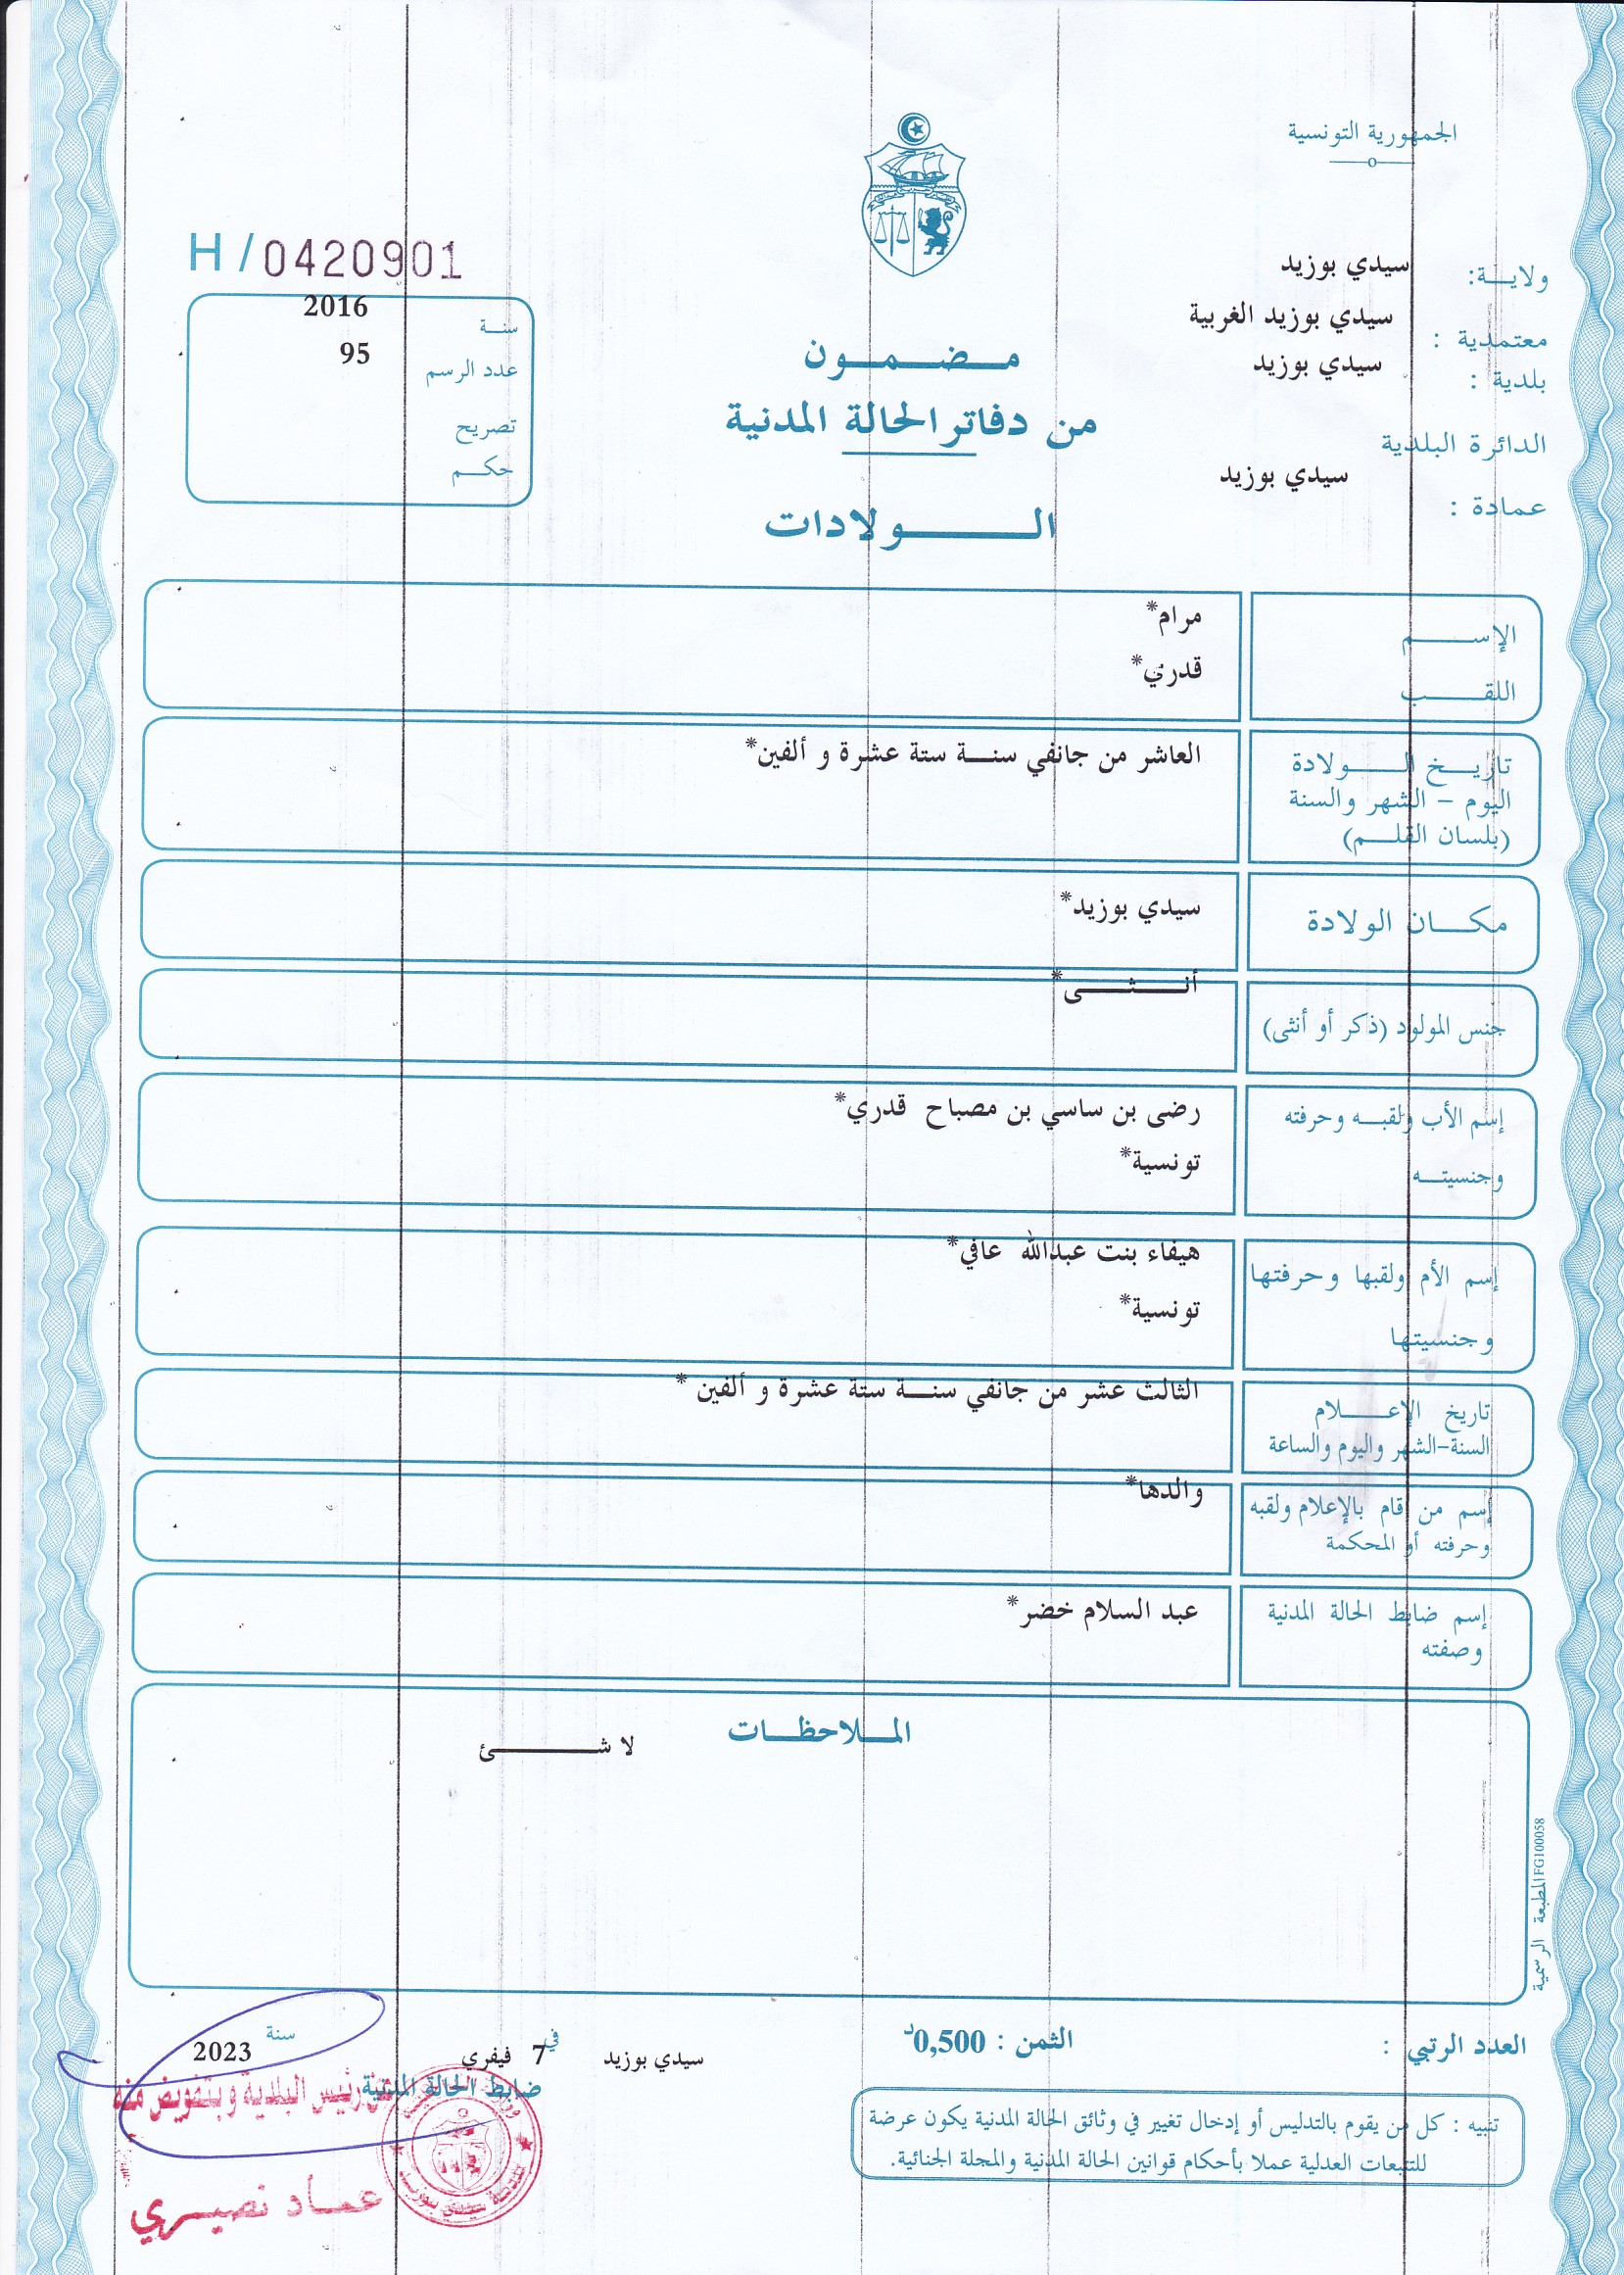 الجمهورية التونسية
ولاية: سيدي بوزيد
معتمدية : سيدي بوزيد الغربية
بلدية : سيدي بوزيد
الدائرة البلدية
سيدي بوزيد
عمادة :
H / 0420901
سنة 2016
عدد الرسم 95
تصريح
حكم
مضمون
من دفاتر الحالة المدنية
الولادات
الإسم مرام*
اللقب قدري*
تاريخ الولادة العاشر من جانفي سنة ستة عشرة و ألفين*
اليوم - الشهر والسنة
(بلسان القلم)
مكان الولادة سيدي بوزيد*
جنس المولود (ذكر أو أنثى) أنثى*
إسم الأب ولقبه وحرفته رضى بن ساسي بن مصباح قدري*
وجنسيته تونسية*
إسم الأم ولقبها وحرفتها هيفاء بنت عبدالله عافي*
وجنسيتها تونسية*
تاريخ الإعلام الثالث عشر من جانفي سنة ستة عشرة و ألفين *
السنة-الشهر واليوم والساعة
إسم من قام بالإعلام ولقبه والدها*
وحرفته أو المحكمة
إسم ضابط الحالة المدنية عبد السلام خضر*
وصفته
الملاحظات
لا شئ
المطبعة الرسمية FG100058
العدد الرتبي :
الثمن : 0,500د
سيدي بوزيد في 7 فيفري سنة 2023
ضابط الحالة المدنية
عن رئيس البلدية وبتفويض منه
عماد نصيري
تنبيه : كل من يقوم بالتدليس أو إدخال تغيير في وثائق الحالة المدنية يكون عرضة
للتتبعات العدلية عملا بأحكام قوانين الحالة المدنية والمجلة الجنائية.